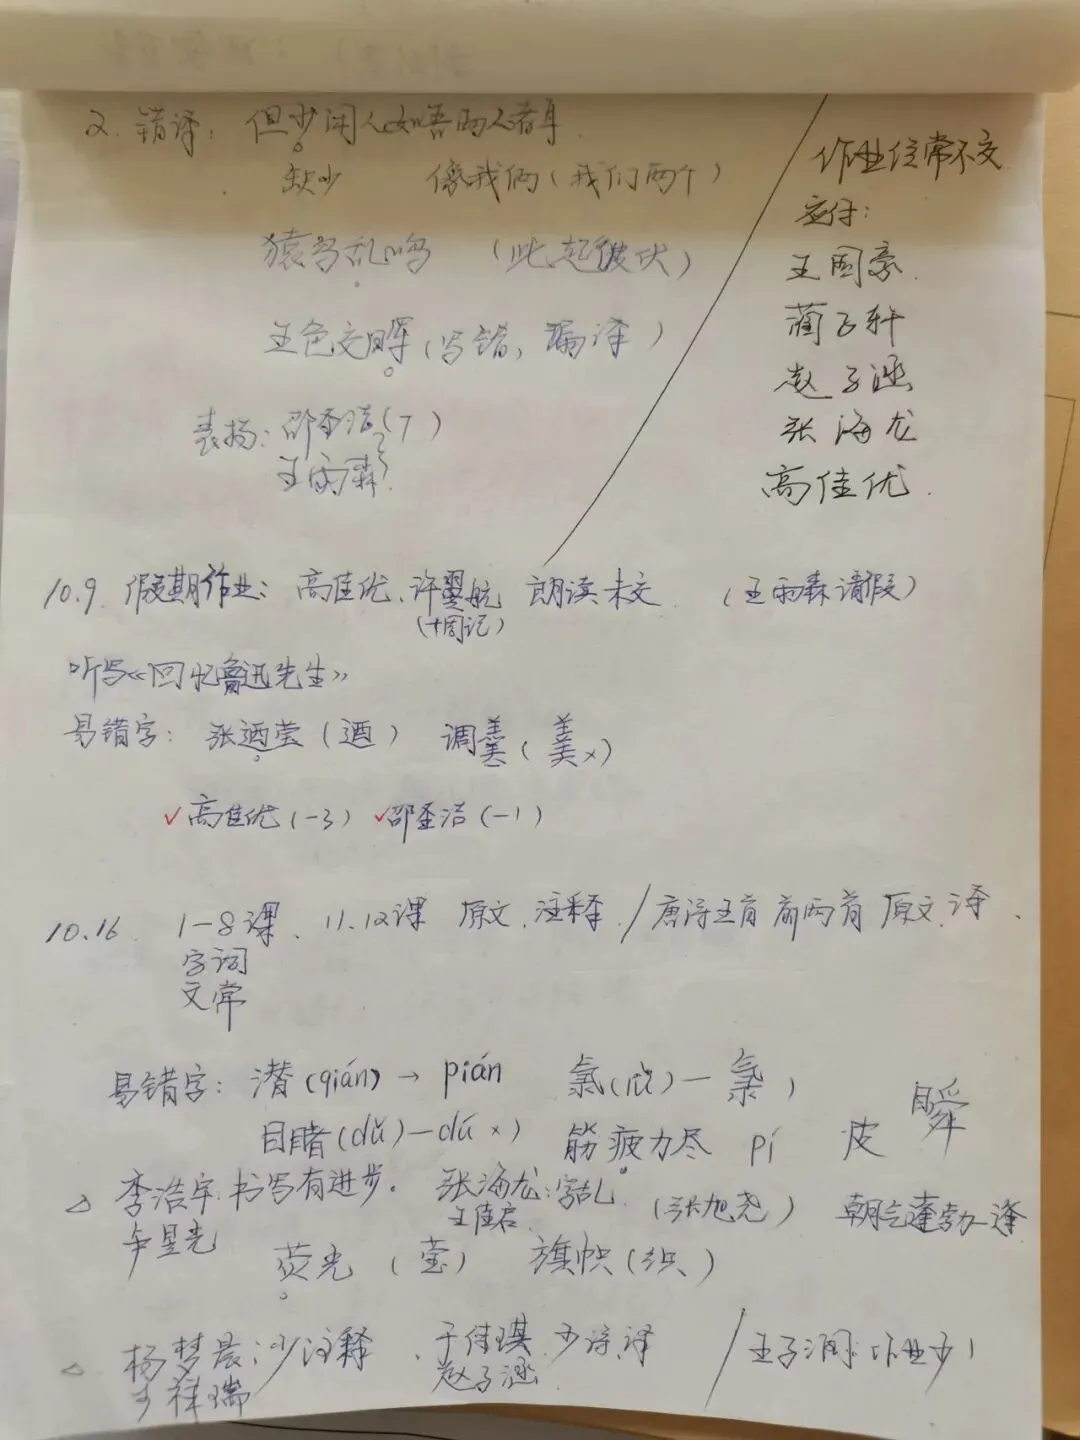 2. 错译: 但少闲人如吾两人者耳
缺少 像我俩(我们两个)
猿鸟乱鸣 (此起彼伏)
五色交晖(写错, 漏译)
表扬: 邵奎洁(7)
王雨森
作业经常不交
应付:
王国豪
蔺子轩
赵子涵
张海龙
高佳优
10.9 假期作业: 高佳优、许翼航 朗读未交 (王雨森请假)
(十周记)
听写《回忆鲁迅先生》
易错字: 张迺莹(迺) 调羹(羹×)
✓高佳优(-3) ✓邵奎洁(-1)
10.16 1-8课、11.12课 原文、注释 / 唐诗五首 前两首 原文、译
字词
文常
易错字: 潜(qián)→pián
目睹(dǔ)—dú ×) 筋疲力尽 pí 皮 瞬
△ 李浩宇 书写有进步. 张海龙: 字乱 (张旭尧) 朝气蓬勃—逢
王佳启
荧光 (莹) 旗帜(织)
△ 杨梦晨: 少注释、于佳琪 少诗译 / 王子润: 作业少1
赵子涵